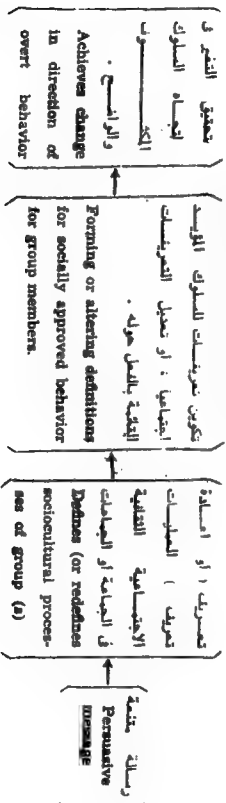 رسالة مقنعة
Persuasive
message
تعريف ( أو اعادة
تعريف ) العمليات
الاجتماعية الثقافية
فى الجماعة أو الجماعات
Defines (or redefines
sociocultural proces-
ses of group (s)
تكوين تعريفات للسلوك المؤيد
اجتماعيا ، أو تعديل التعريفات
القائمة بالفعل حوله .
Forming or altering definitions
for socially approved behavior
for group members.
تحقيق التغير فى
اتجاه السلوك
المكشوف
والواضح .
Achieves change
in direction of
overt behavior